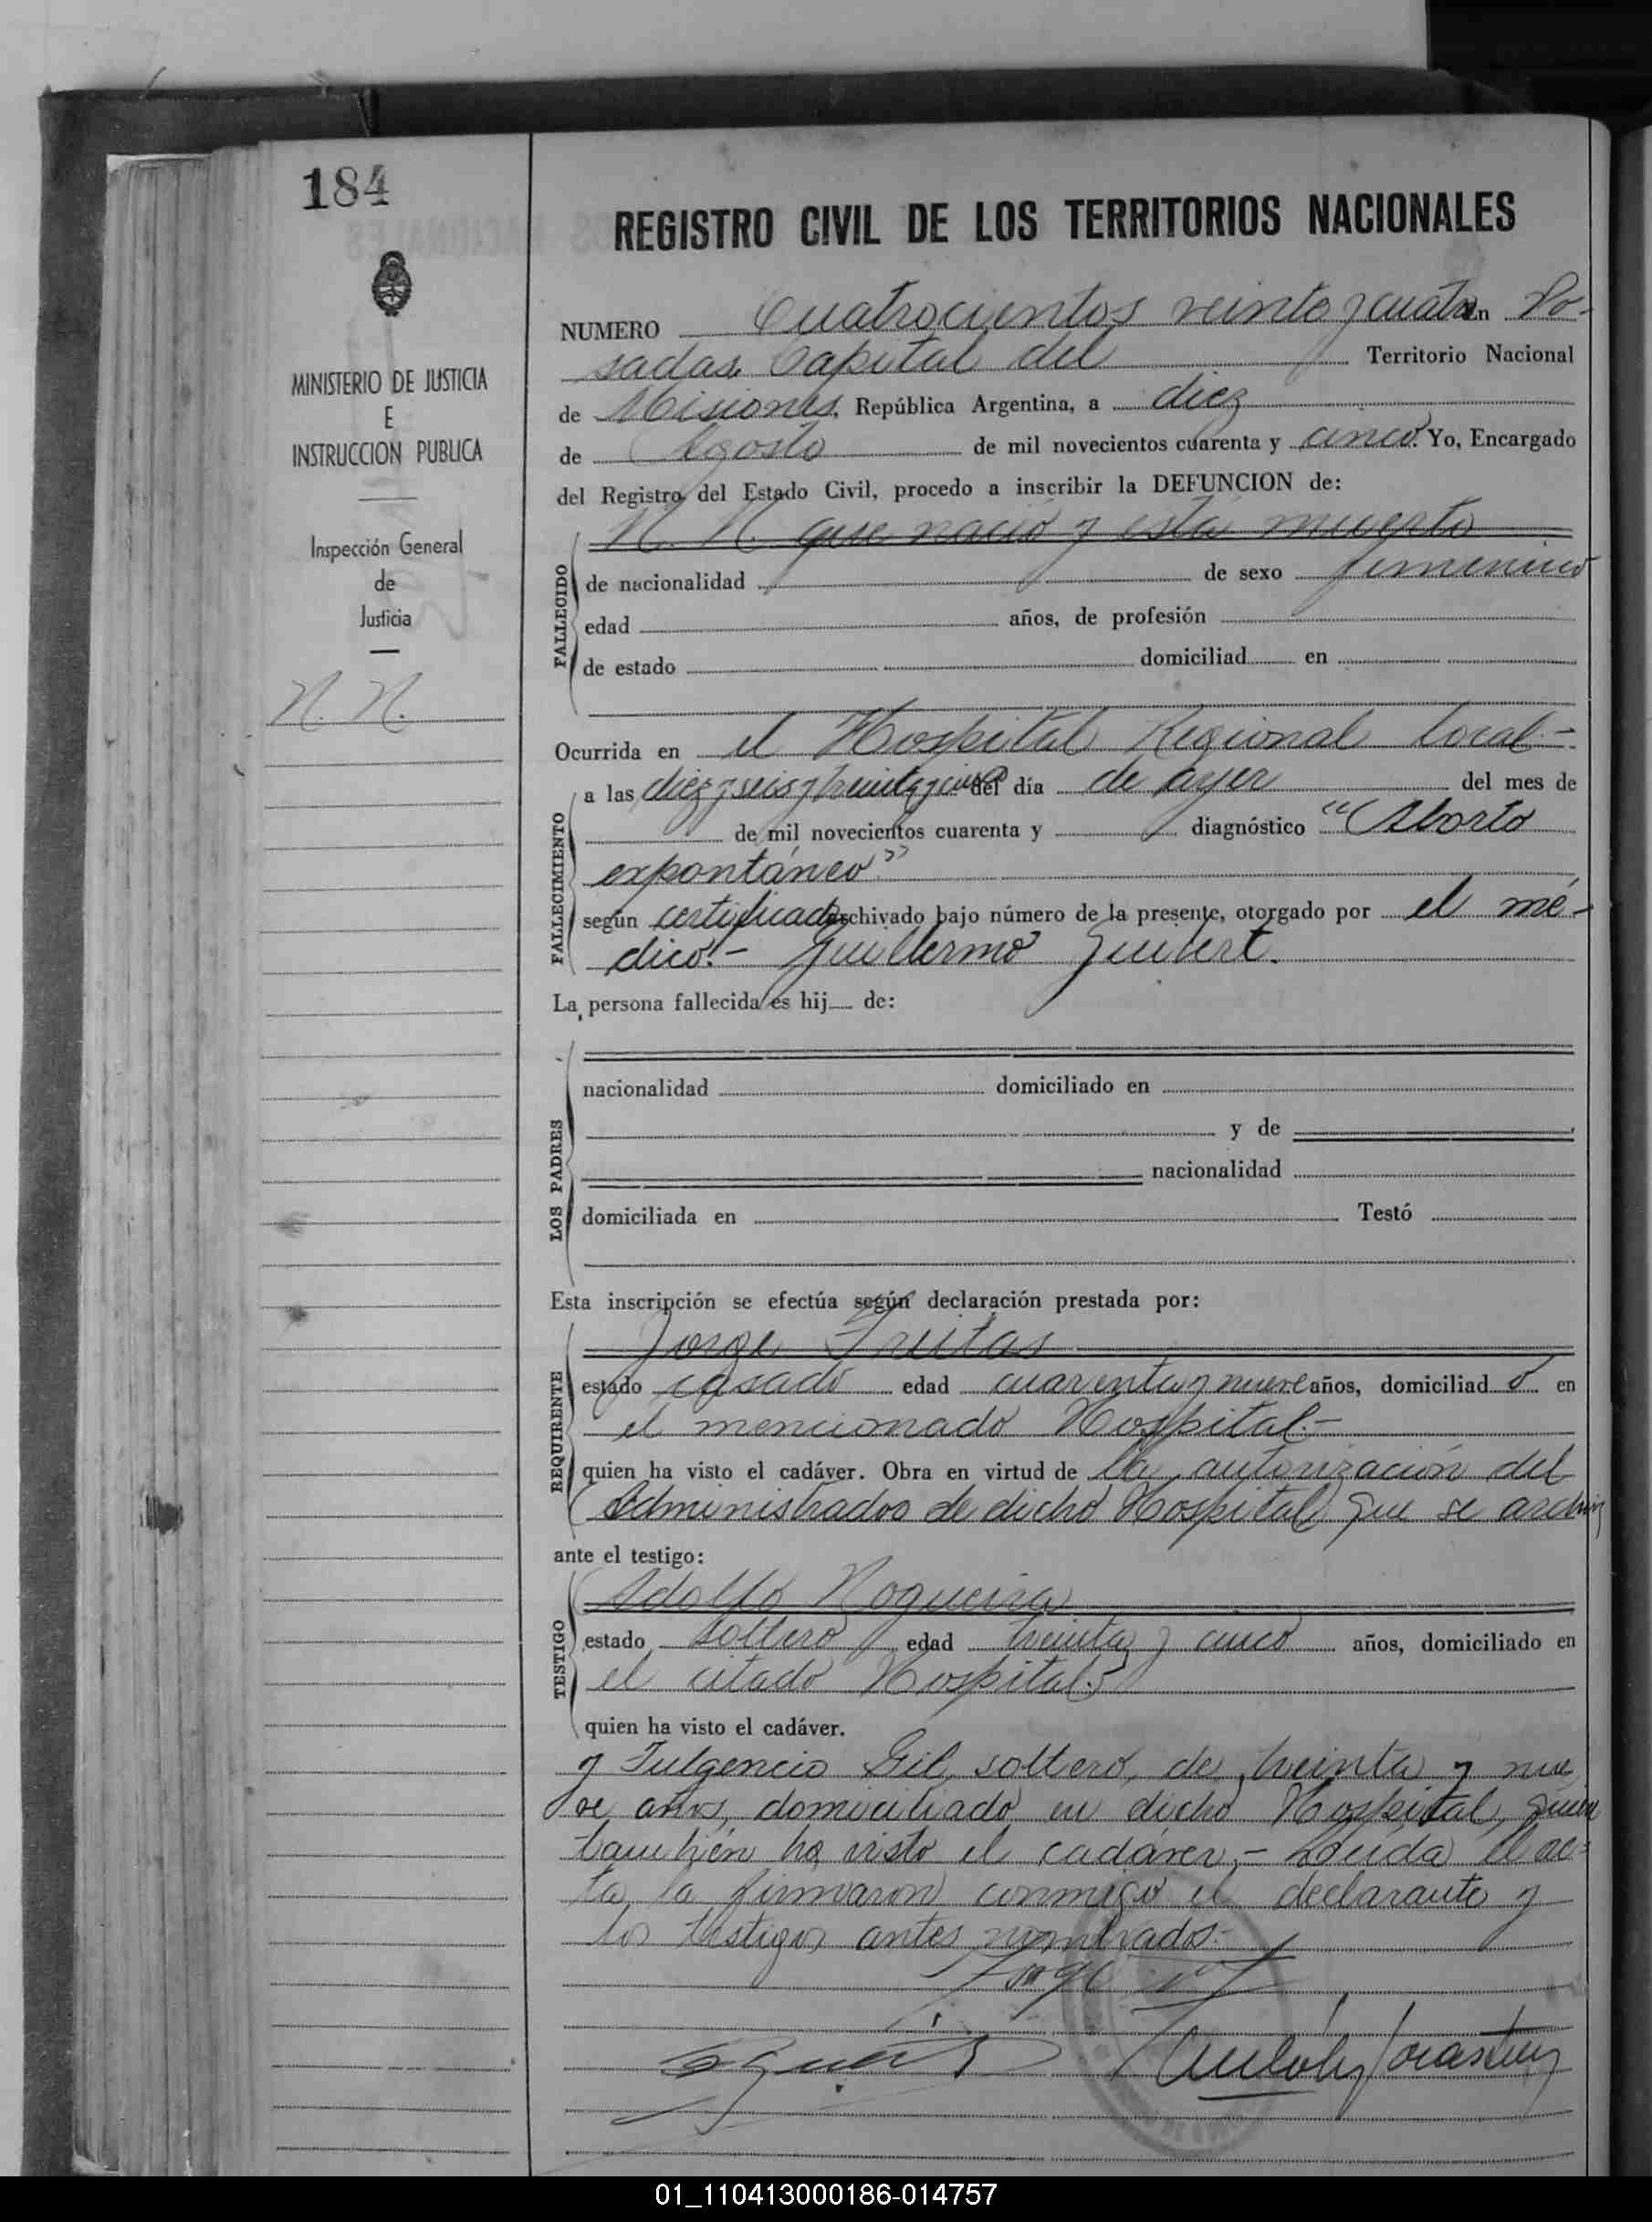 184
MINISTERIO DE JUSTICIA
E
INSTRUCCION PUBLICA
Inspección General
de
Justicia
N. N.
REGISTRO CIVIL DE LOS TERRITORIOS NACIONALES
NUMERO Cuatrocientos veinte y cuatro en Po-
sadas Capital del Territorio Nacional
de Misiones, República Argentina, a diez
de Agosto de mil novecientos cuarenta y cinco. Yo, Encargado
del Registro del Estado Civil, procedo a inscribir la DEFUNCION de:
N. N. que nació y está muerto
FALLECIDO
de nacionalidad de sexo femenino
edad años, de profesión
de estado domiciliad en
Ocurrida en el Hospital Regional local.-
a las diez y seis y treinta y cinco del día de ayer del mes de
FALLECIMIENTO
de mil novecientos cuarenta y diagnóstico "Aborto
expontáneo"
según certificado archivado bajo número de la presente, otorgado por el mé-
dico.- Guillermo
La persona fallecida es hij de:
LOS PADRES
nacionalidad domiciliado en
y de
nacionalidad
domiciliada en Testó
Esta inscripción se efectúa según declaración prestada por:
REQUIRENTE
Jorge Freitas
estado casado edad cuarenta y nueve años, domiciliad o en
el mencionado Hospital.-
quien ha visto el cadáver. Obra en virtud de la autorización del
Administrador de dicho Hospital que se archiva
ante el testigo:
TESTIGO
Adolfo Nogueira
estado soltero edad treinta y cinco años, domiciliado en
el citado Hospital.
quien ha visto el cadáver.
y Fulgencio Gil, soltero, de treinta y nue
ve años, domiciliado en dicho Hospital, quien
también ha visto el cadáver.- Leída el ac-
ta, la firmaron conmigo el declarante y
los testigos antes nombrados.-
Jorge
01_110413000186-014757